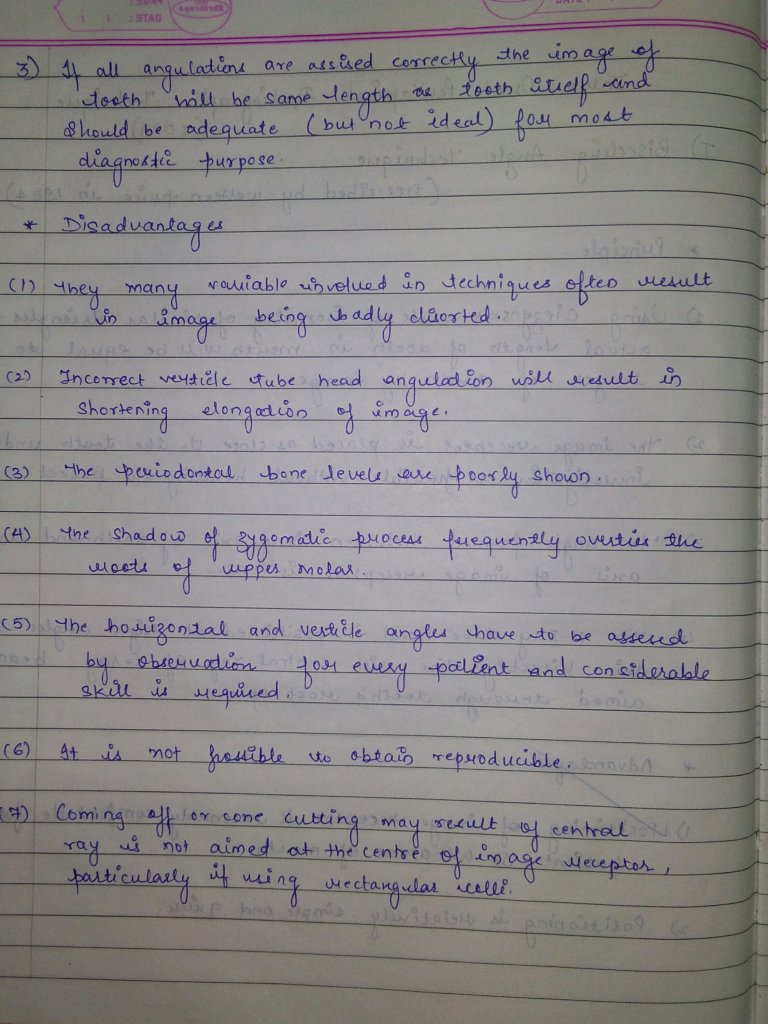 DATE:
3) If all angulations are assised correctly the image of
tooth will be same length as tooth itself and
should be adequate (but not ideal) for most
diagnostic purpose.
* Disadvantages
(1) They many vauiable involved in techniques often result
in image being badly disorted.
(2) Incorrect verticle tube head angulation will result in
shortening elongation of image.
(3) The periodontal bone levels are poorly shown.
(4) The shadow of zygomatic process frequently overties the
roots of upper molar.
(5) The horizontal and verticle angles have to be assesed
by observation for every patient and considerable
skill is required.
(6) It is not possible to obtain reproducible.
(7) Coming off or cone cutting may result of central
ray is not aimed at the centre of image receptor,
particularly if using rectangular colli.